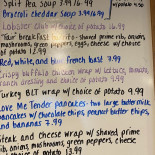 Split Pea Soup 3.99 / 4.99
Broccoli Cheddar Soup 3.99 / 4.99
Lobster with choice of 16.99
"Tour" breakfast shaved prime rib, onions,
mushrooms, green peppers, eggs, cheese w/ choice
of potato 12.99
Red, white, and blue French toast 7.99
Crispy buffalo wrap w/ lettuce,
ranch dressing and choice of potato 9.99
Turkey BLT wrap w/ choice of potato 9.99
Love Me Tender Pancakes: two large buttermilk
pancakes w/ chocolate chips, peanut butter chips,
and bananas 7.99
Steak and cheese wrap w/ shaved prime
rib, onions, mushrooms, green peppers, cheese
of potato 13.99